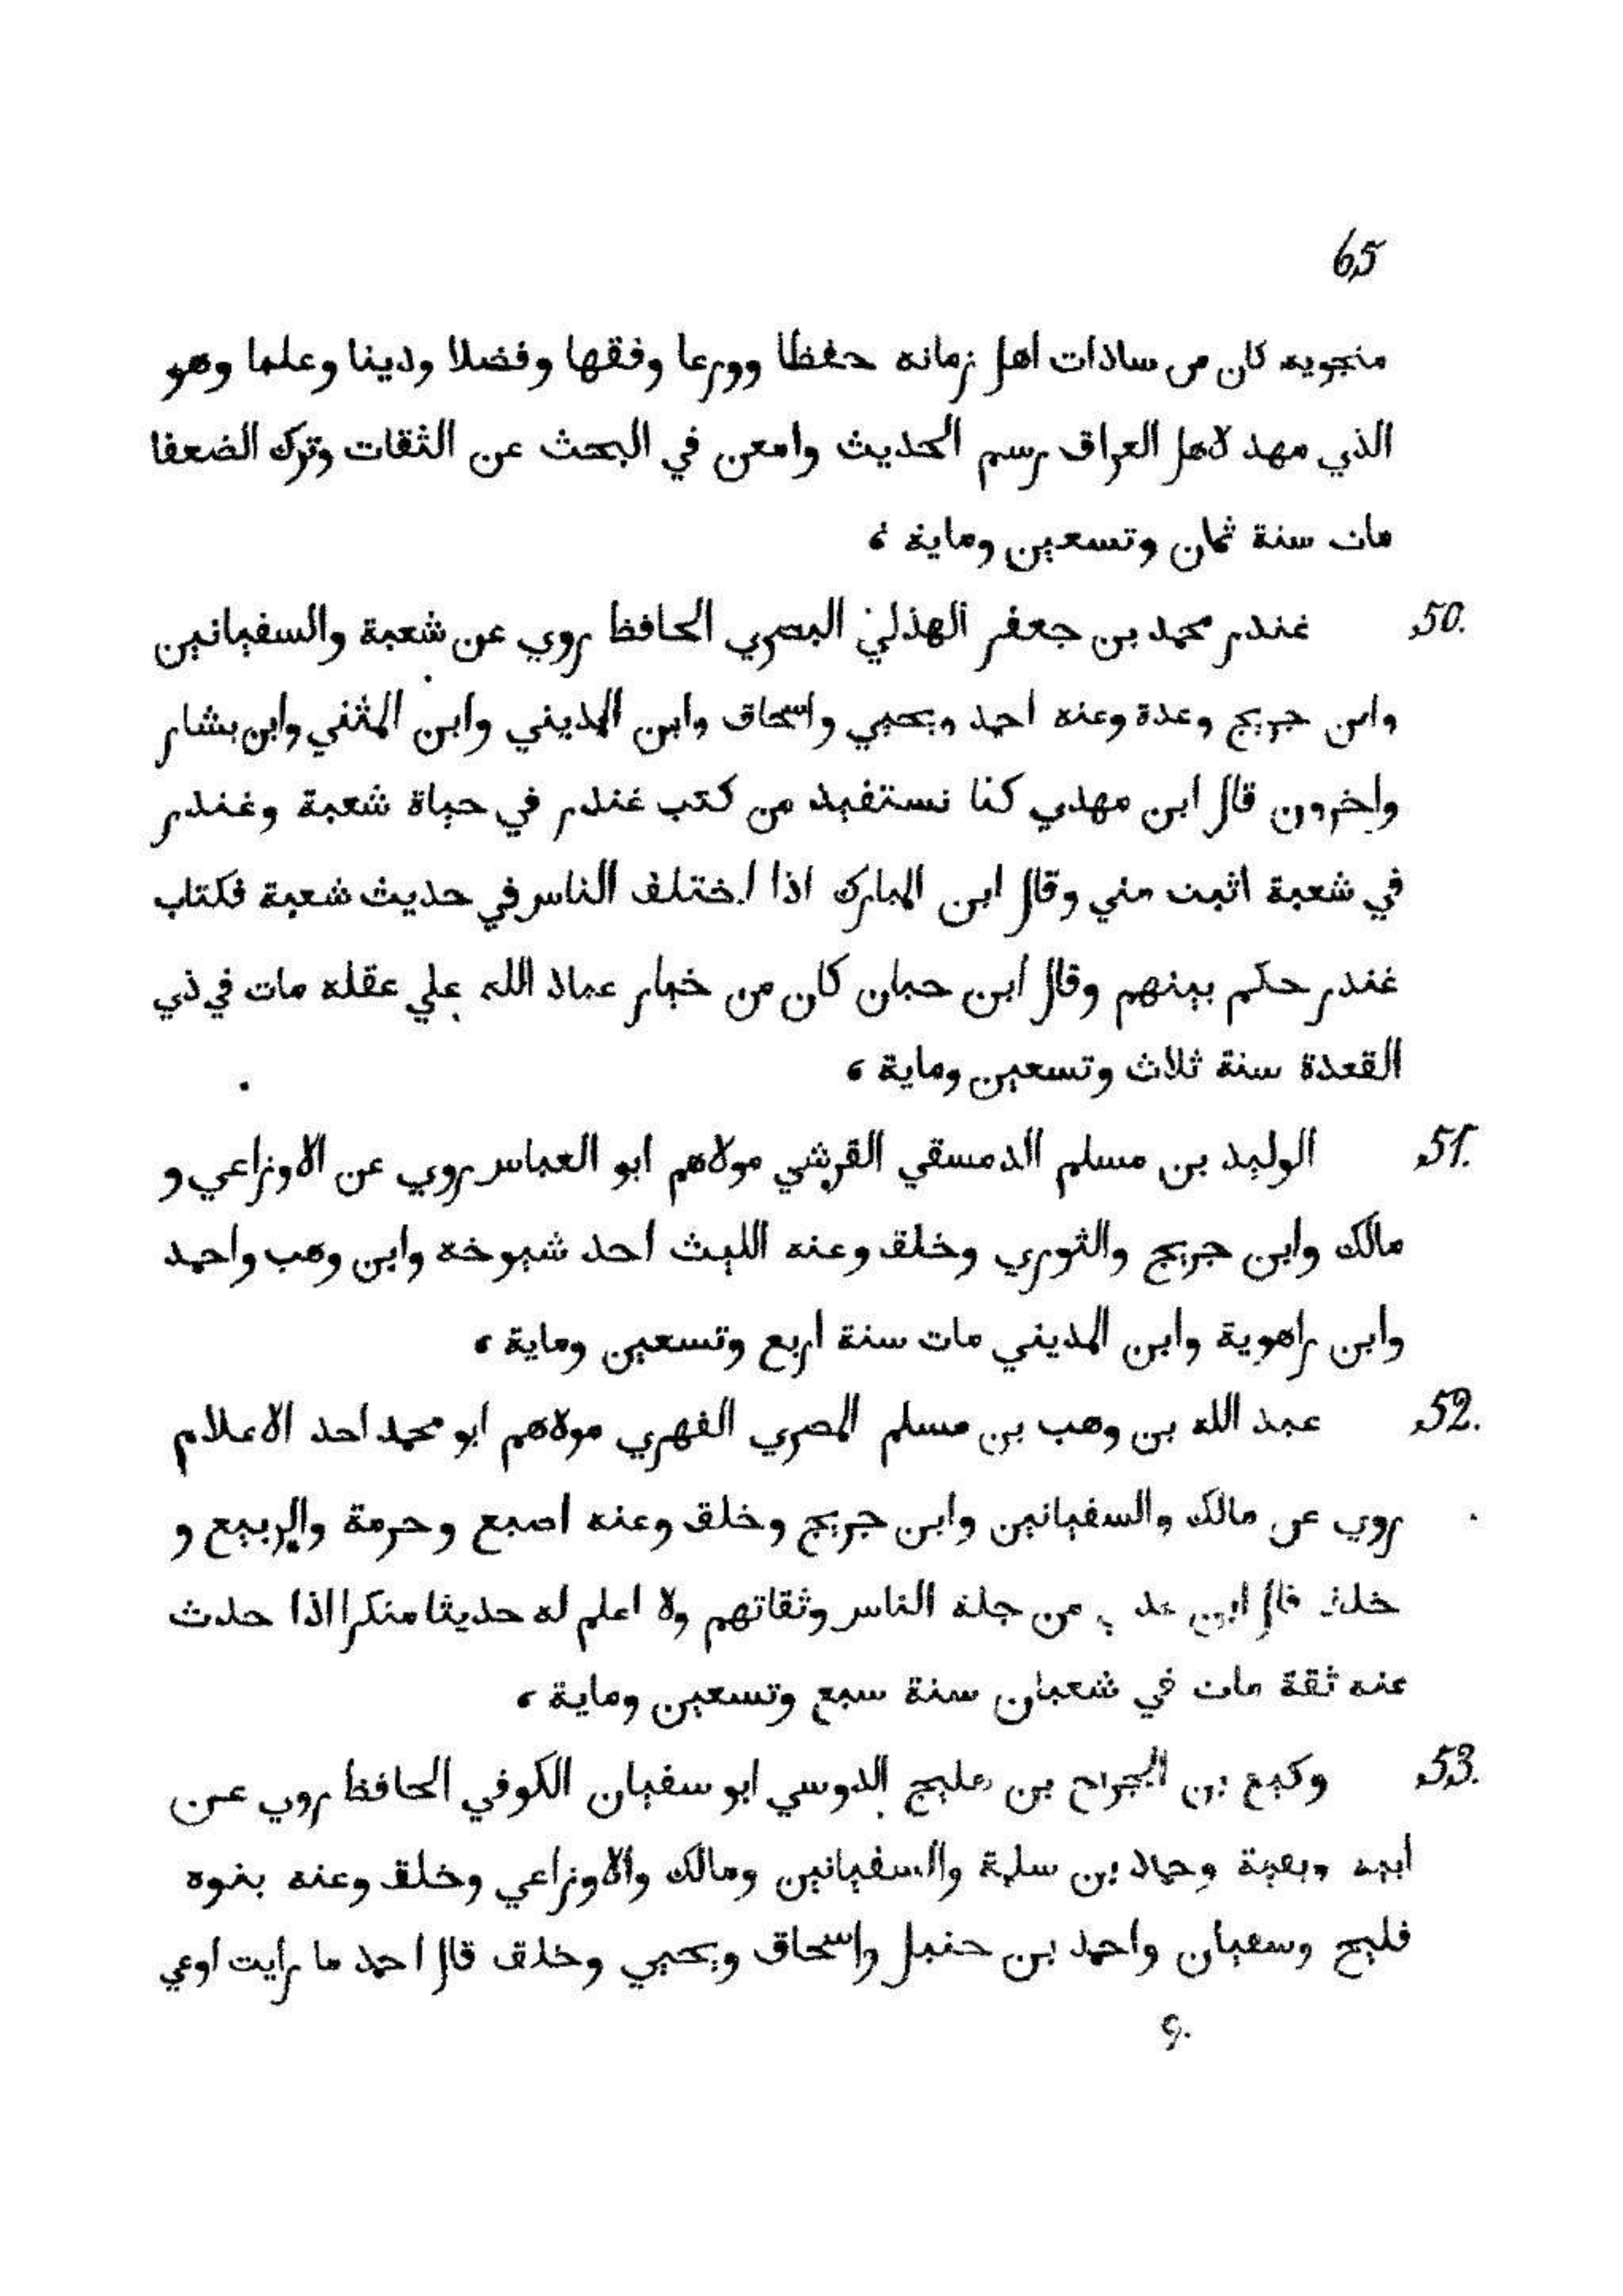 65
منجويه كان من سادات اهل زمانه حفظا وورعا وفقها وفضلا ودينا وعلما وهو
الذي مهد لاهل العراق رسم الحديث وامعن في البحث عن الثقات وترك الضعفا
مات سنة ثمان وتسعين وماية ،
50. غندر محمد بن جعفر الهذلي البصري الحافظ روي عن شعبة والسفيانين
وابن جريج وعدة وعنه احمد ويحيي واسحاق وابن المديني وابن المثني وابن بشار
واخرون قال ابن مهدي كنا نستفيد من كتب غندر في حياة شعبة وغندر
في شعبة اثبت مني وقال ابن المبارك اذا اختلف الناس في حديث شعبة فكتاب
غندر حكم بينهم وقال ابن حبان كان من خيار عباد الله علي عقله مات في ذي
القعدة سنة ثلاث وتسعين وماية ،
51. الوليد بن مسلم الدمسقي القرشي مولاهم ابو العباس روي عن الاوزاعي و
مالك وابن جريج والثوري وخلق وعنه الليث احد شيوخه وابن وهب واحمد
وابن راهوية وابن المديني مات سنة اربع وتسعين وماية ،
52. عبد الله بن وهب بن مسلم المصري الفهري مولاهم ابو محمد احد الاعلام
روي عن مالك والسفيانين وابن جريج وخلق وعنه اصبع وحرمة والربيع و
خلق قال ابن من جلة الناس وثقاتهم ولا اعلم له حديثا منكرا اذا حدث
عنه ثقة مات في شعبان سنة سبع وتسعين وماية ،
53. وكيع بن الجراح بن مليح الدوسي ابو سفيان الكوفي الحافظ روي عن
ابيه وحماد بن سلمة والسفيانين ومالك والاوزاعي وخلق وعنه بنوه
فليح وسفيان واحمد بن حنبل واسحاق ويحيي وخلق قال احمد ما رايت اوعي
9.